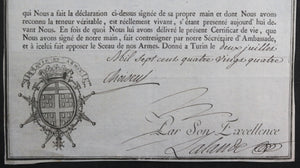 qui Nous a fait la déclaration ci-dessus signée de sa propre main et dont Nous avons
reconnu la teneur véritable, est reellement vivant, s'étant présenté aujourd'hui lui de-
vant Nous. En foi de quoi Nous lui avons délivré le présent Certificat de vie, que
Nous avons signé de notre main, fait contresigner par notre Secrétaire d'Ambassade,
et à icelui fait apposer le Sceau de nos Armes. Donné à Turin le deux juillet
Mil Sept cent quatre vingt quatre
Choiseul
Par Son Excellence
Lalande